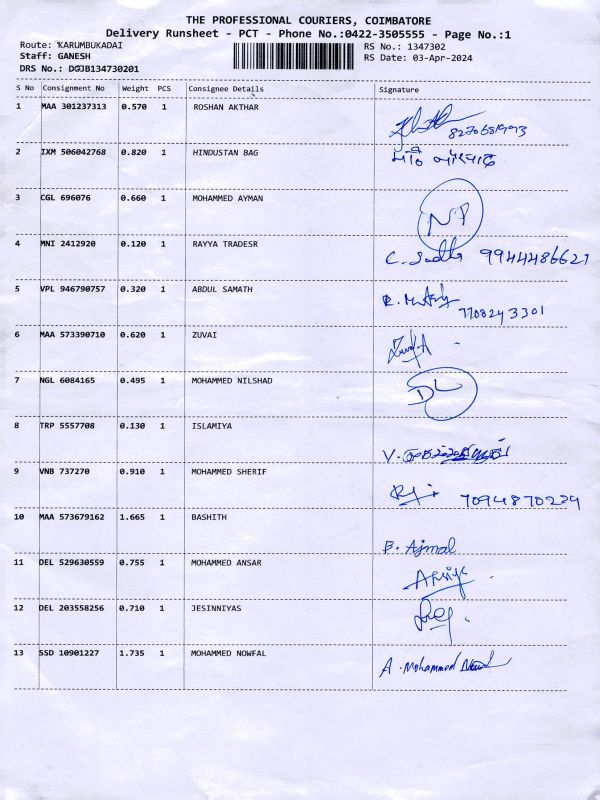 THE PROFESSIONAL COURIERS, COIMBATORE
Delivery Runsheet - PCT - Phone No.:0422-3505555 - Page No.:1
Route: KARUMBUKADAI RS No.: 1347302
Staff: GANESH RS Date: 03-Apr-2024
DRS No.: DGJB134730201
S No Consignment No Weight PCS Consignee Details Signature
1 MAA 301237313 0.570 1 ROSHAN AKTHAR
2 IXM 506042768 0.820 1 HINDUSTAN BAG
3 CGL 696076 0.660 1 MOHAMMED AYMAN NP
4 MNI 2412920 0.120 1 RAYYA TRADESR C. Sudha 9944486627
5 VPL 946790757 0.320 1 ABDUL SAMATH
7708243301
6 MAA 573390710 0.620 1 ZUVAI
7 NGL 6084165 0.495 1 MOHAMMED NILSHAD DL
8 TRP 5557708 0.130 1 ISLAMIYA V.
9 VNB 737270 0.910 1 MOHAMMED SHERIF 7094870239
10 MAA 573679162 1.665 1 BASHITH B. Ajmal
11 DEL 529630559 0.755 1 MOHAMMED ANSAR
12 DEL 203558256 0.710 1 JESINNIYAS
13 SSD 10901227 1.735 1 MOHAMMED NOWFAL A. Mohammed